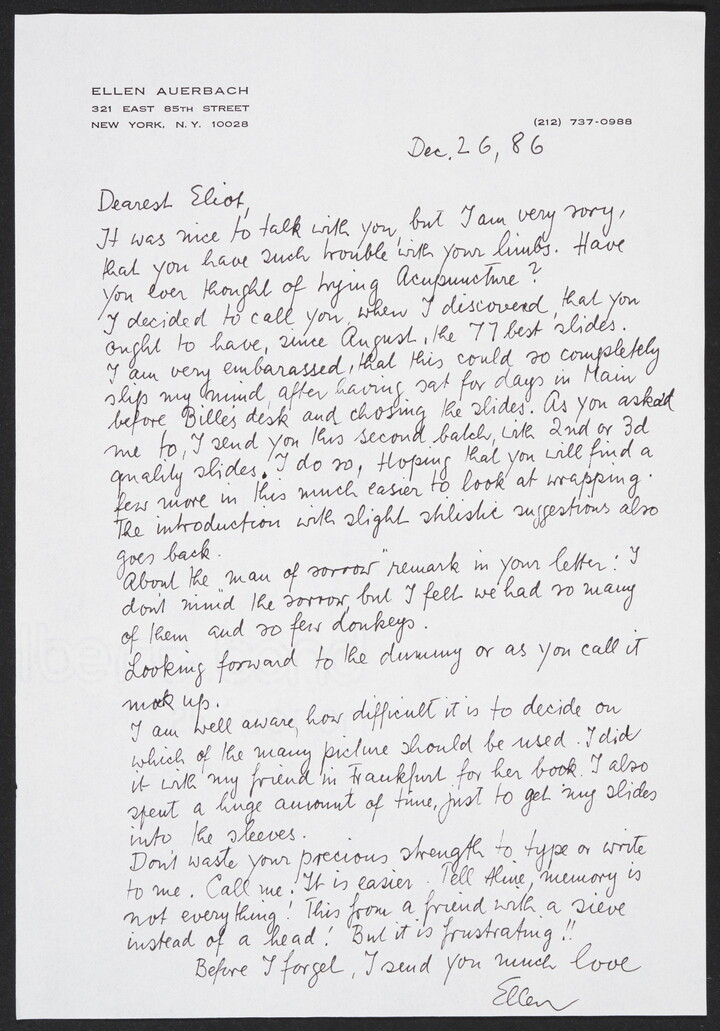 ELLEN AUERBACH
321 EAST 85TH STREET
NEW YORK, N.Y. 10028
(212) 737-0988
Dec. 26, 86
Dearest Eliot,
It was nice to talk with you, but I am very sorry,
that you have such trouble with your limbs. Have
you ever thought of trying Acupuncture?
I decided to call you, when I discovered, that you
ought to have, since August, the 77 best slides.
I am very embarassed, that this could so completely
slip my mind, after having sat for days in Main
before Bille's desk and chosing the slides. As you asked
me to, I send you this second batch, with 2nd or 3d
quality slides. I do so, hoping that you will find a
few more in this much easier to look at wrapping.
The introduction with slight stilistic suggestions also
goes back.
About the "man of sorrow" remark in your letter: I
don't mind the sorrow, but I felt we had so many
of them and so few donkeys.
Looking forward to the dummy or as you call it
mock up.
I am well aware, how difficult it is to decide on
which of the many picture should be used. I did
it with my friend in Frankfurt for her book. I also
spent a huge amount of time, just to get my slides
into the sleeves.
Don't waste your precious strength to type or write
to me. Call me. It is easier. Tell Aline, memory is
not everything! This from a friend with a sieve
instead of a head! But it is frustrating!!
Before I forget, I send you much love
Ellen